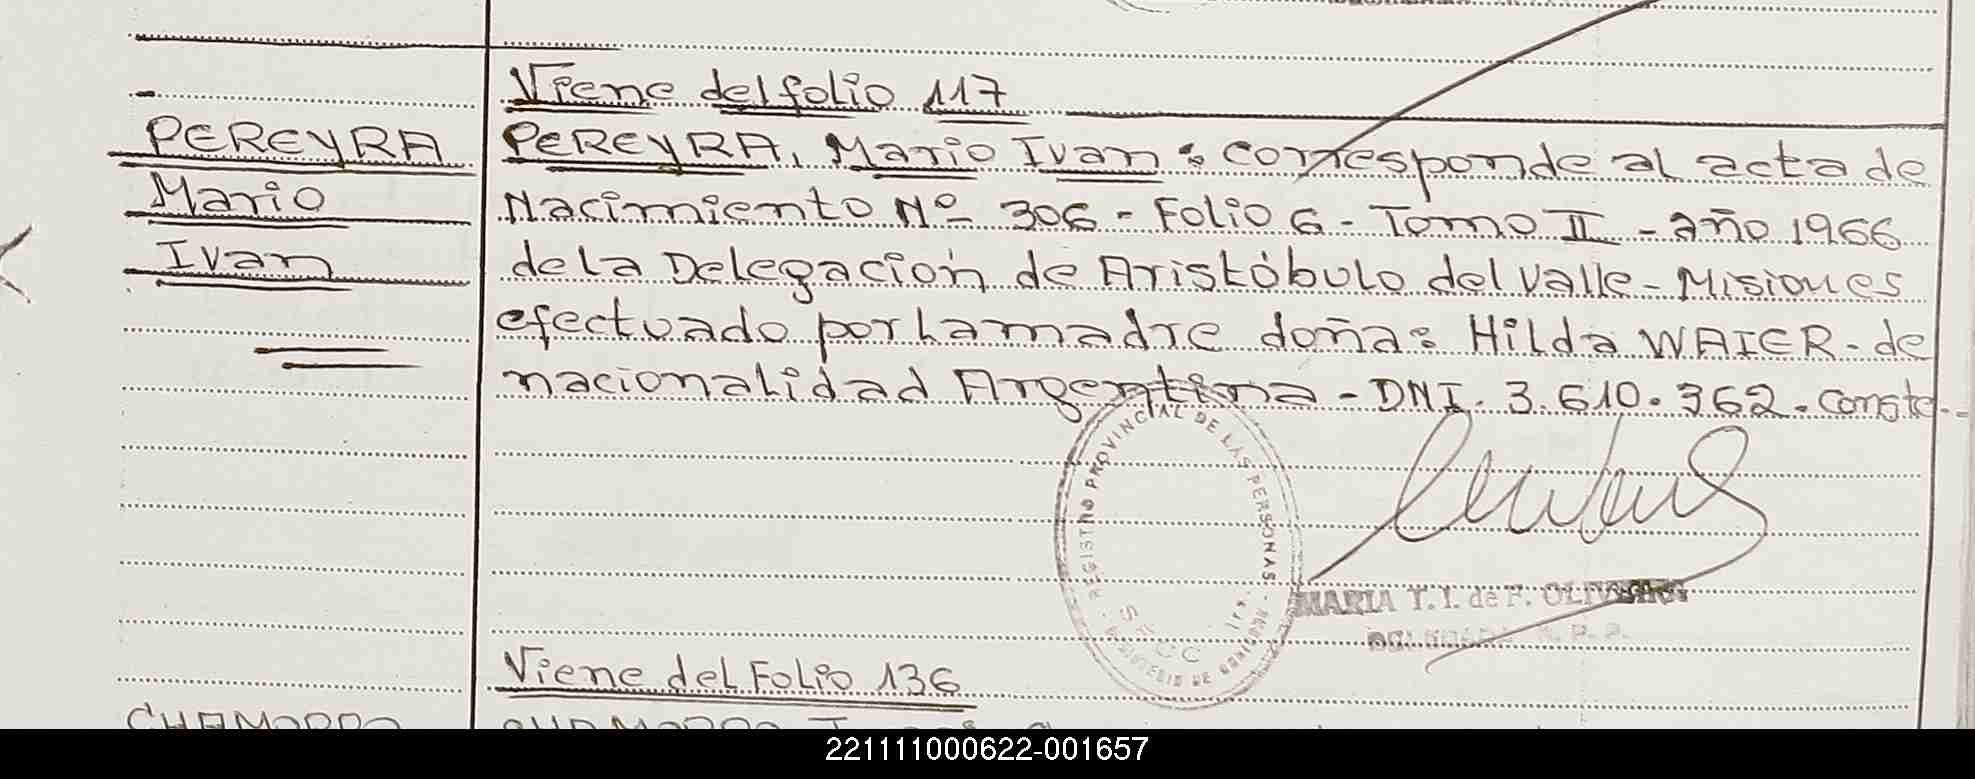 Viene del folio 117
PEREYRA
Mario
Ivan
PEREYRA, Mario Ivan: corresponde al acta de
Nacimiento Nº 306 - Folio 6 - Tomo II - año 1966
de la Delegación de Aristóbulo del Valle - Misiones
efectuado por la madre doña: Hilda WAIER - de
nacionalidad Argentina - DNI. 3.610.362. Conste.-
REGISTRO PROVINCIAL DE LAS PERSONAS - MISIONES
MINISTERIO DE
MARIA T. I. de F.
Viene del Folio 136
CHAMORRO
CHAMORRO
221111000622-001657